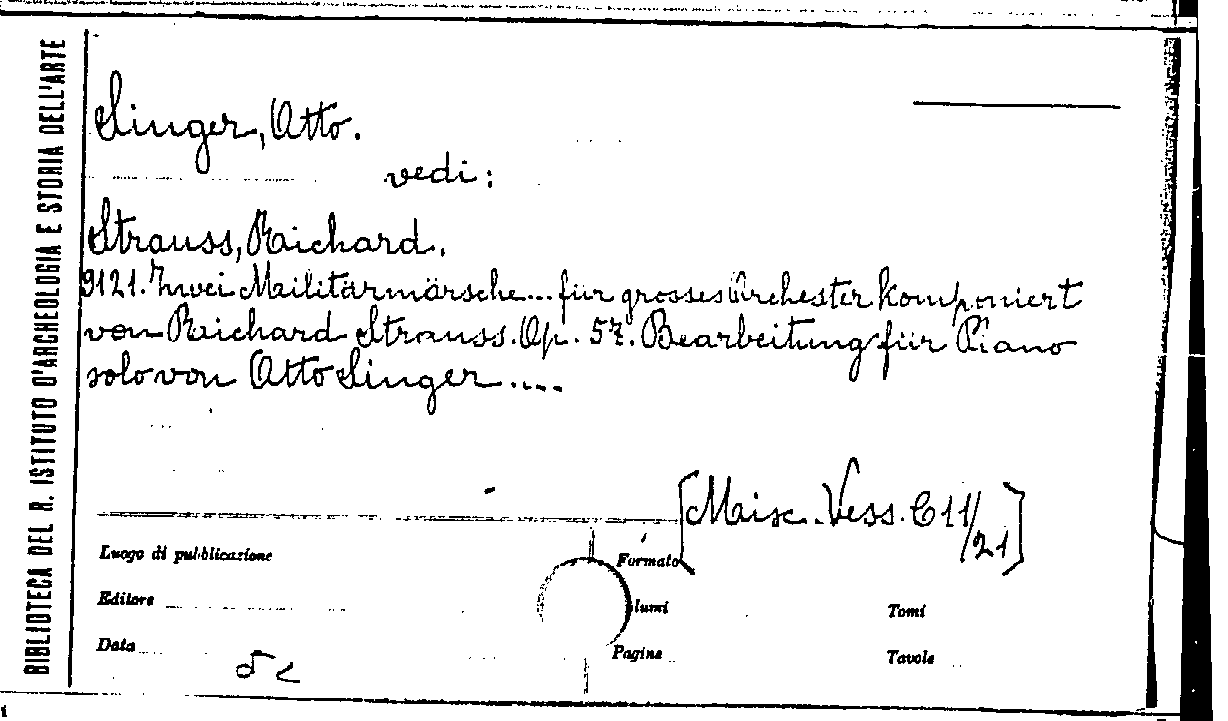 BIBLIOTECA DEL R. ISTITUTO D'ARCHEOLOGIA E STORIA DELL'ARTE
Singer, Otto.
vedi:
Strauss, Richard.
9121. Zwei Militärmärsche... für grosses Orchester komponiert
von Richard Strauss. Op. 57. Bearbeitung für Piano
solo von Otto Singer....
[Misc. Vess. C 11/21]
Luogo di pubblicazione
Formato
Editore
lumi
Tomi
Data
Pagine
Tavole